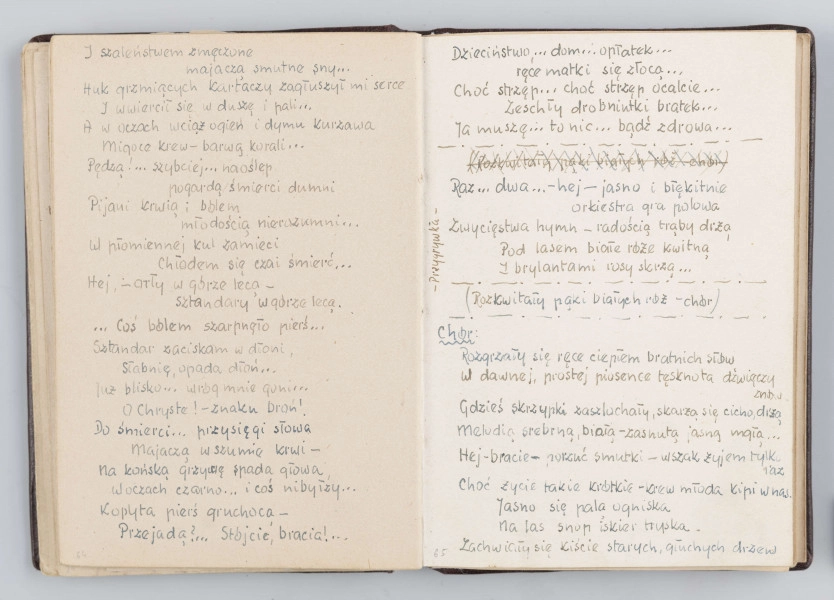 I szaleństwem zmęczone
majaczą smutne sny...
Huk grzmiących kartaczy zagłuszył mi serce
I wwiercił się w duszę i pali...
A w oczach wciąż ogień i dymu kurzawa
Migoce krew – barwą korali...
Pędzą!... szybciej... naoślep
pogardą śmierci dumni
Pijani krwią i bólem
młodością nierozumni...
W płomiennej kul zamieci
Chłodem się czai śmierć...
Hej, – orły w górze lecą –
Sztandary w górze lecą.
... Coś bólem szarpnęło pierś...
Sztandar zaciskam w dłoni,
Słabnię, opada dłoń...
Już blisko... wróg mnie goni...
O Chryste! – znaku broń!
Do śmierci... przysięgi słowa
Majaczą w szumie krwi –
Na końską grzywę spada głowa,
W oczach czarno... i coś niby łzy...
Kopyta pierś gruchocą –
Przejadą?... Stójcie, bracia!...
64
Dzieciństwo... dom... opłatek...
ręce matki się złocą...
Choć strzęp... choć strzęp ocalcie...
Zeschły drobniutki bratek...
Ja muszę... to nic... bądź zdrowa...
(Rozkwitały pąki białych róż – chór)
Raz... dwa... – hej – jasno i błękitnie
orkiestra gra polowa
Zwycięstwa hymn – radością trąby drżą
Pod lasem białe róże kwitną
I brylantami rosy skrzą...
– Przygrywka –
(Rozkwitały pąki białych róż – chór)
Chór:
Rozgrzały się ręce ciepłem bratnich słów
W dawnej, prostej piosence tęsknota dźwięczy
znów.
Gdzieś skrzypki zaszlochały, skarżą się cicho, drżą
Melodią srebrną, białą – zasnutą jasną mgłą...
Hej – bracie – porzuć smutki – wszak żyjem tylko
raz
Choć życie takie krótkie – krew młoda kipi w nas.
Jasno się palą ogniska
Na las snop iskier tryska.
Zachwiały się kiście starych, głuchych drzew
65